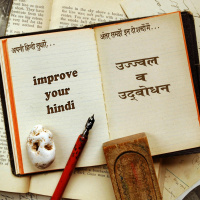 अपनी हिन्दी सुधारें...
improve
your
hindi
अंतर समझें इन दो शब्दों में...
उज्ज्वल
व
उद्‌बोधन